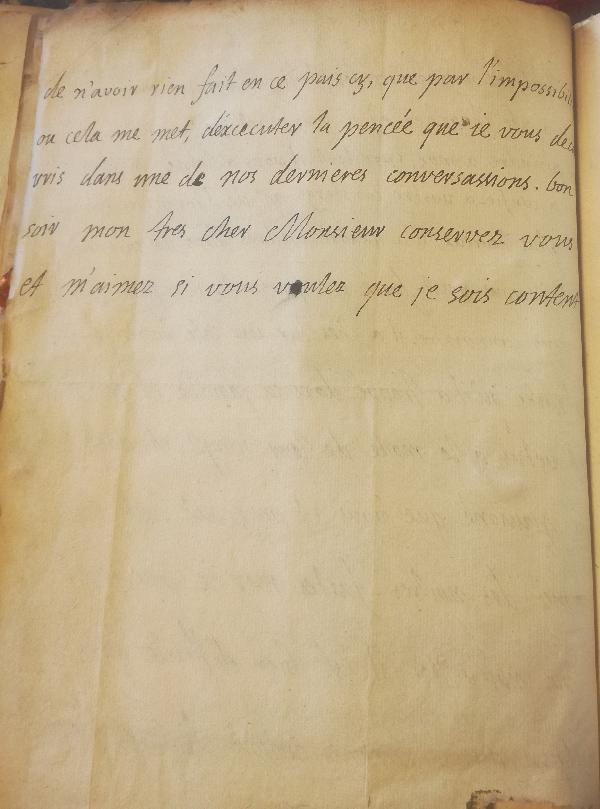 de n'avoir rien fait en ce pais cy, que par l'impossibili
ou cela me met, déxcecuter la pencée que ie vous deco
uris dans une de nos dernieres conversassions. bon
soir mon tres cher Monsieur conservez vous
et m'aimez si vous voulez que je sois content